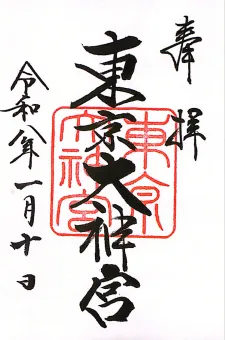 奉拝
東京大神宮
東京大神宮
令和八年一月十日